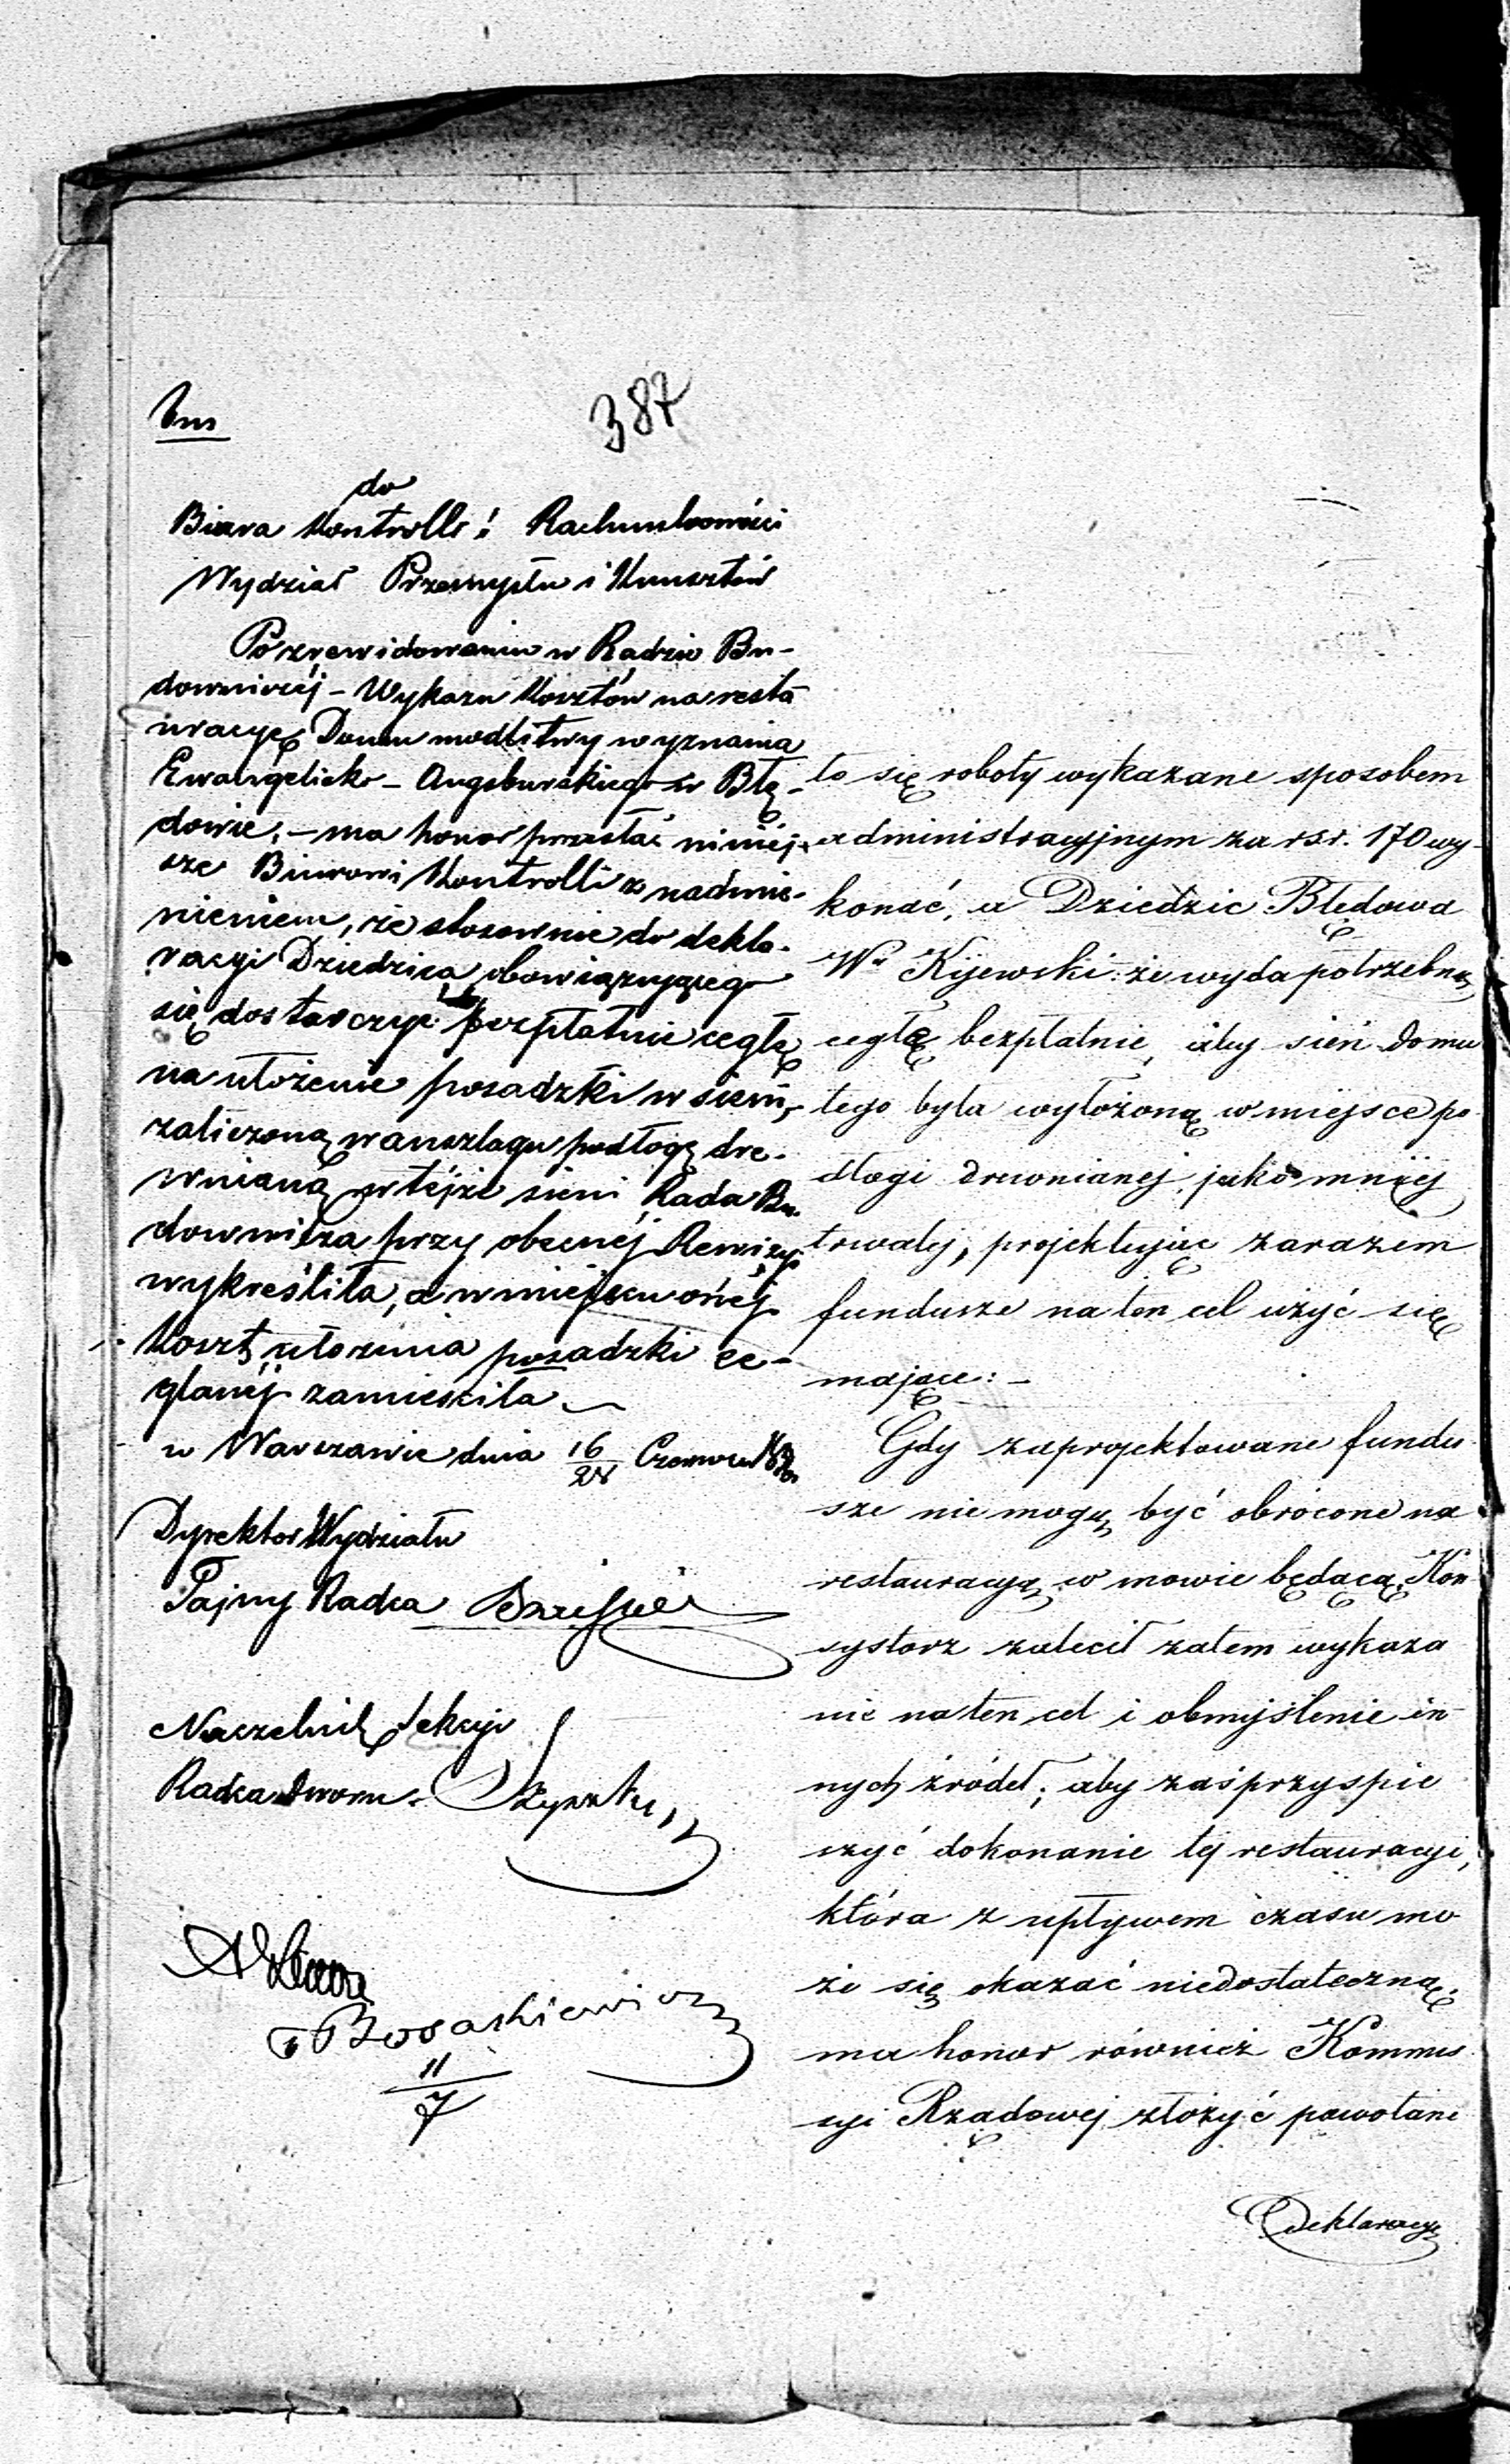 387
do
Biura Kontrolli i Rachunkowości
Wydział Przemysłu i Kunsztów
Po zrewidowaniu w Radzie Bu-
downiczéj – Wykazu Kosztów na resta
uracyę Domu modlitwy wyznania
Ewangelicko – Augsburskiego w Błę-
dowie, – ma honor przesłać niniéj-
sze Biurowi Kontrolli z nadmie-
nieniem, że stosownie do dekla-
racyi Dziedzica obowiązującego
się dostarczyć bezpłatnie cegłę
na ułożenie posadzki w sieni,
zaliczoną w anszlagu podłogę dre-
wnianą w téjże sieni Rada Bu-
downicza przy obecnéj Rewizyi
wykreśliła, a w miejscu onéj
Koszt ułożenia posadzki ce-
glanéj zamieściła
w Warszawie dnia 16/28 Czerwca
Dyrektor Wydziału
Tajny Radca
Naczelnik Sekcyi
Radca Dworu
11/7
to się roboty wykazane sposobem
administracyjnym za rsr. 170 wy-
konać, a Dziedzic Błędowa
Wny Kijewski: że wyda potrzebną
cegłę bezpłatnie, aby sień domu
tego była wyłożoną w miejsce po
dłogi drewnianej, jako mniéj
trwałej, projektując zarazem
fundusze na ten cel użyć się
mające: –
Gdy zaprojektowane fundu
sze nie mogą być obrócone na
restauracyą w mowie będącą, Kon
systorz zalecił zatem wykaza
nie na ten cel i obmyślenie in-
nych źródeł; aby zaś przyspie
szyć dokonanie tej restauracyi,
która z upływem czasu mo
że się okazać niedostateczną,
ma honor również Kommis
syi Rządowej złożyć powołane
Deklaracye